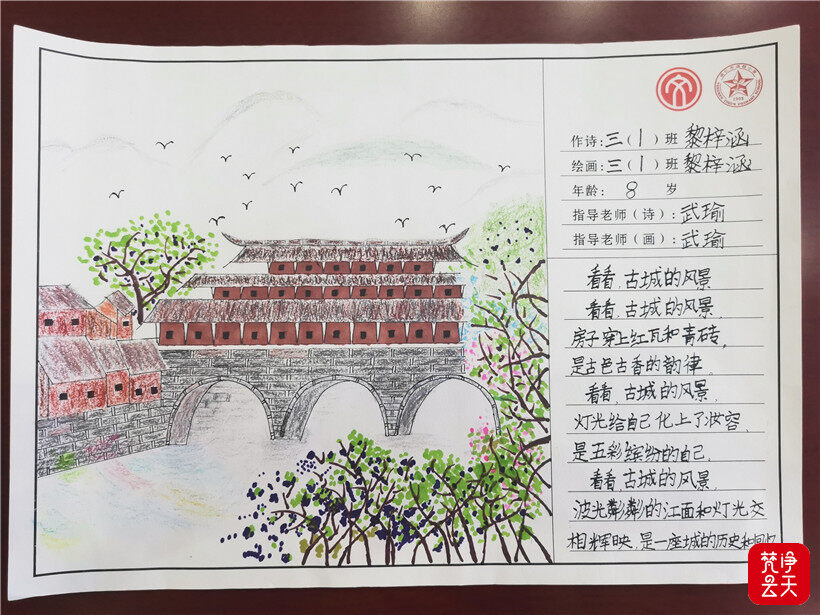 作诗:三(1)班 黎梓涵
绘画:三(1)班 黎梓涵
年龄: 8 岁
指导老师(诗):武瑜
指导老师(画):武瑜
看看,古城的风景
看看,古城的风景,
房子穿上红瓦和青砖,
是古色古香的韵律。
看看,古城的风景,
灯光给自己化上了妆容、
是五彩缤纷的自己。
看看,古城的风景,
波光粼粼的江面和灯光交
相辉映,是一座城的历史和
梵净
云天